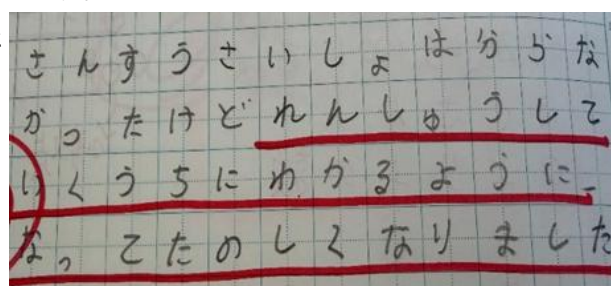 さんすうさいしょはわからな
かったけどれんしゅうして
いくうちにわかるように
なってたのしくなりました